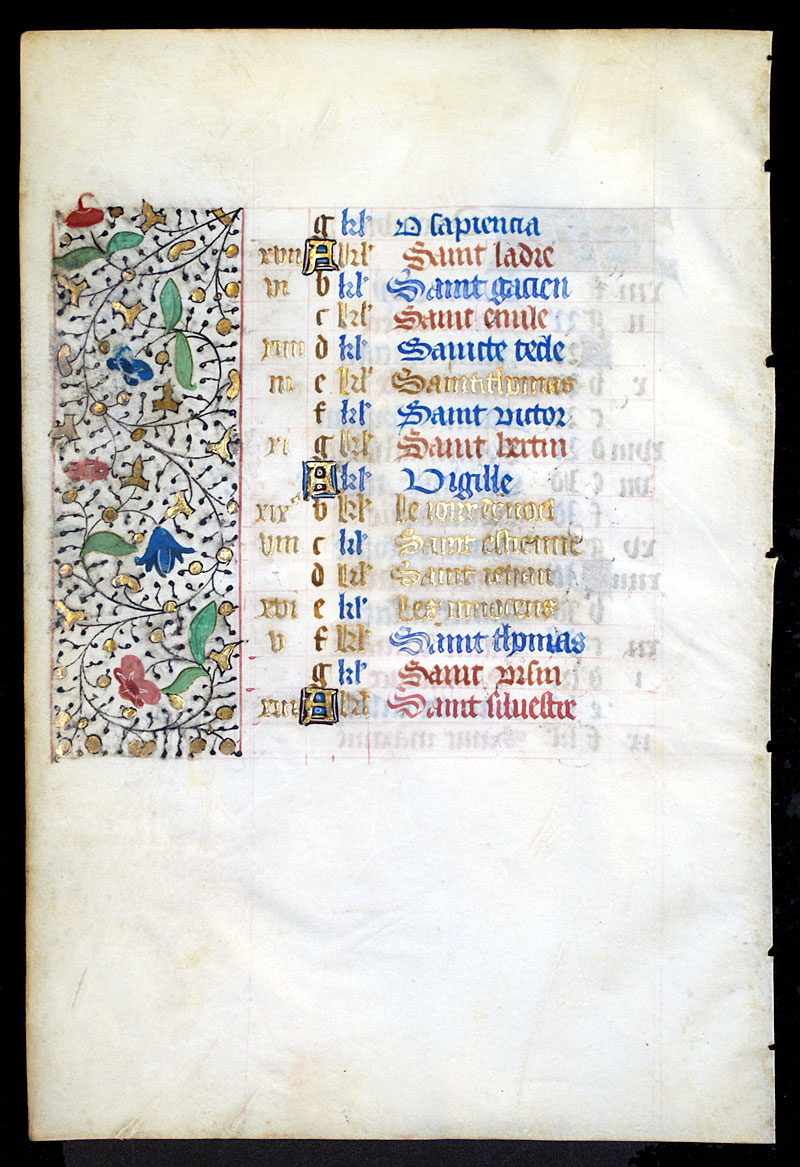 g kl' O sapiencia
xvii A kl' Saint ladre
vi b kl' Saint gacien
c kl' Saint emile
xiiii d kl' Saincte tecle
iii e kl' Saint thomas
f kl' Saint victor
xi g kl' Saint bertin
A kl' Vigille
xix b kl' Le iour denoel
viii c kl' Saint estienne
d kl' Saint iehan
xvi e kl' Les innocens
v f kl' Saint thomas
g kl' Saint vrsin
xiii A kl' Saint siluestre